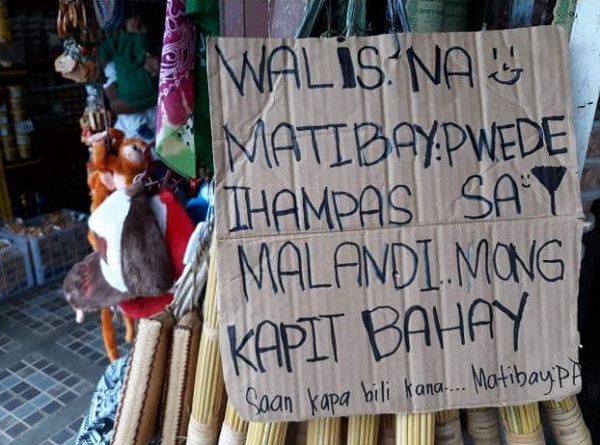 WALIS. NA
MATIBAY:PWEDE
IHAMPAS SA'Y
MALANDI..MONG
KAPIT BAHAY
Saan kapa bili kana.... Matibay:PA